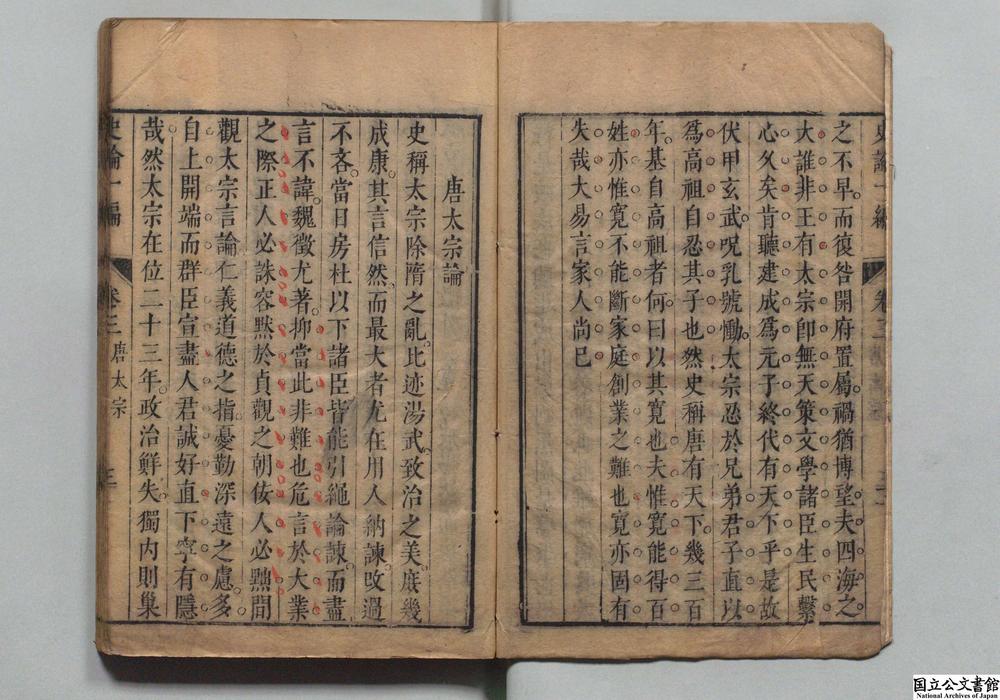 之不早而復咎開府置屬禍猶博望夫四海之
大誰非王有太宗卽無天策文學諸臣生民繫
心久矣肯聽建成爲元子終代有天下乎是故
伏甲玄武呪乳號慟太宗忍於兄弟君子直以
爲高祖自忍其子也然史稱唐有天下幾三百
年基自高祖者何曰以其寬也夫惟寬能得百
姓亦惟寬不能斷家庭創業之難也寬亦固有
失哉大易言家人尚已
史論一編
卷三
唐太宗論
史稱太宗除隋之亂比迹湯武致治之美庶幾
成康其言信然而最大者尤在用人納諫改過
不吝當日房杜以下諸臣皆能引繩論諫而盡
言不諱魏徵尤著抑當此非難也危言於大業
之際正人必誅容默於貞觀之朝佞人必黜間
觀太宗言論仁義道德之指憂勤深遠之慮多
自上開端而群臣宣盡人君誠好直下寧有隱
哉然太宗在位二十三年政治鮮失獨內則巢
史論一編
卷三
唐太宗
三
国立公文書館
National Archives of Japan